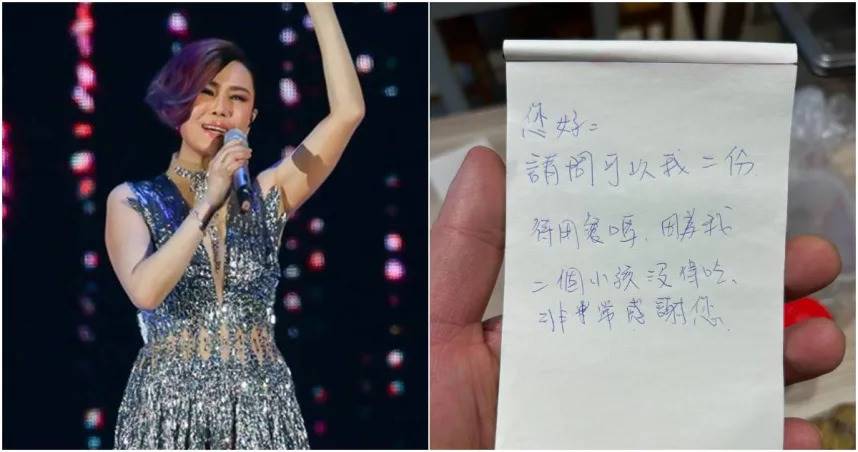 您好：
請問可以我二份
待用餐嗎、因為我
二個小孩沒得吃、
非常感謝您